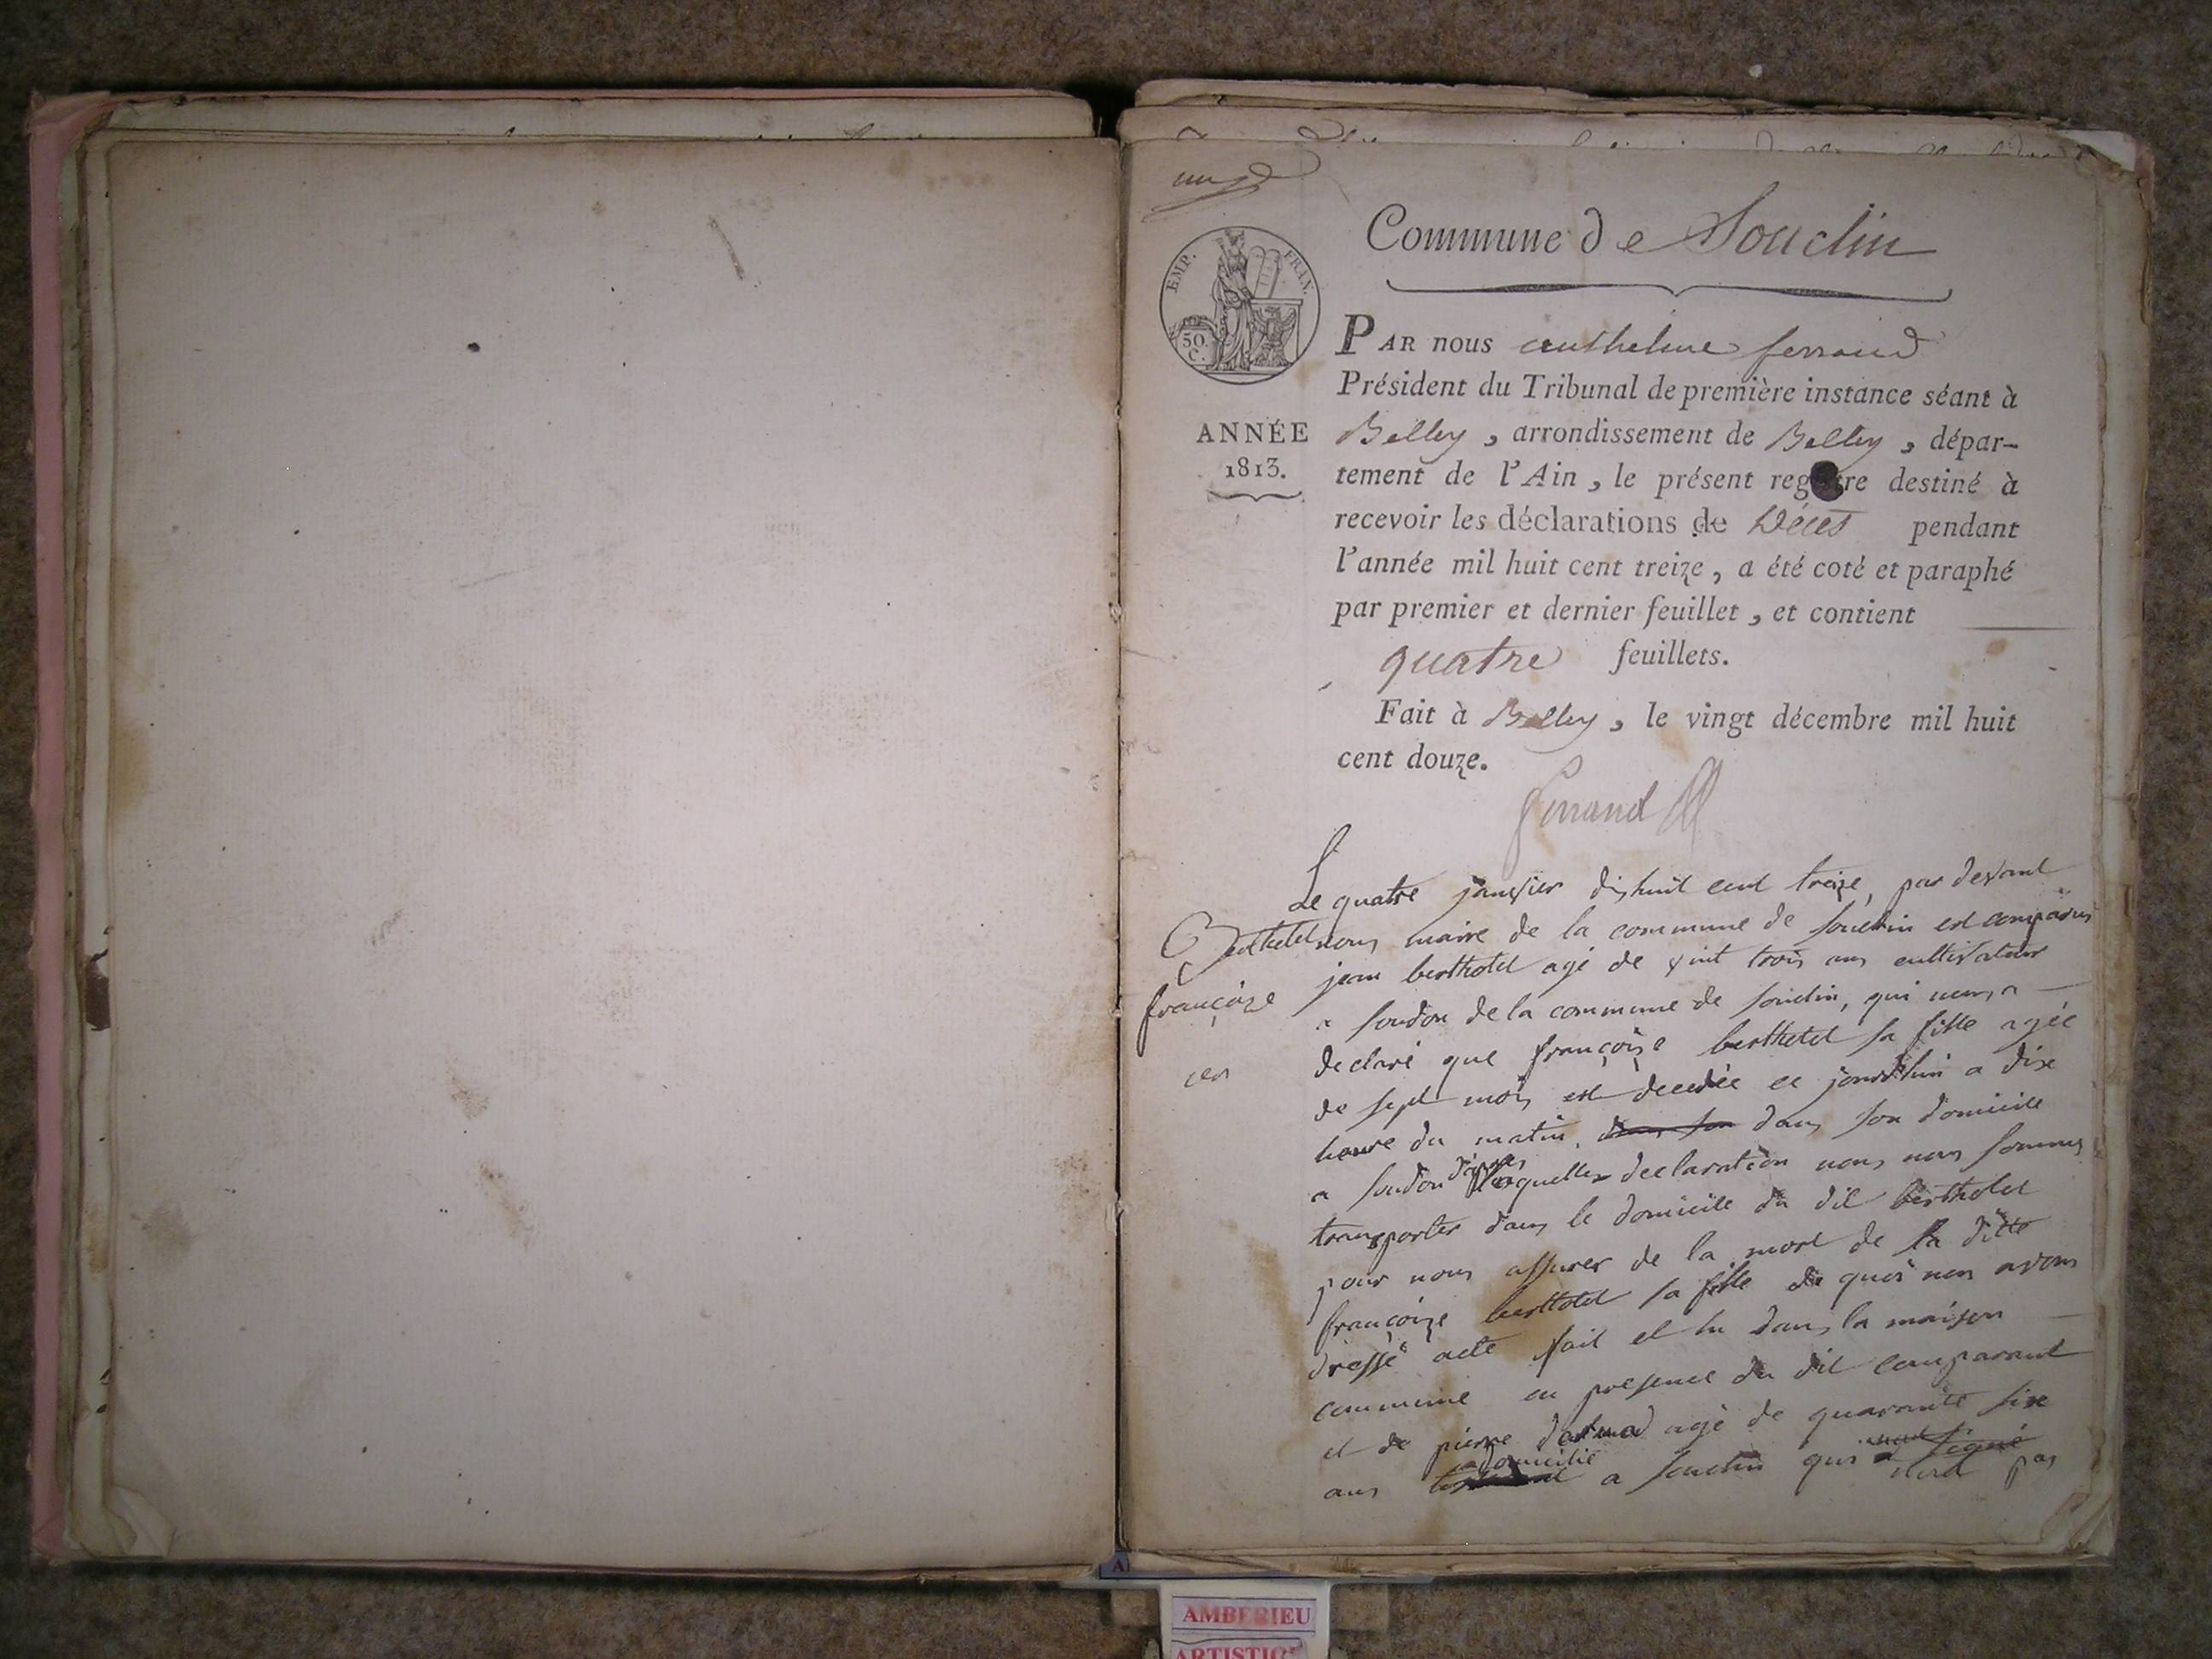 Commune de Souclin
EMP. FRAN.
50. C.
ANNÉE
1813.
PAR nous anthelme ferrand
Président du Tribunal de première instance séant à
Belley, arrondissement de Belley, dépar-
tement de l'Ain, le présent registre destiné à
recevoir les déclarations de Décès pendant
l'année mil huit cent treize, a été coté et paraphé
par premier et dernier feuillet, et contient
quatre feuillets.
Fait à Belley, le vingt décembre mil huit
cent douze.
Ferrand
Berthelet
françoize
Le quatre janvier dixhuit cent treize, par devant
nous maire de la commune de souclin est comparus
jean berthelet agé de vint trois ans cultivateur
a soudon de la commune de souclin, qui nous a
declaré que françoize berthelet sa fille agée
de sept mois est decedée ce jourdhui a dix
heure du matin, dans son dans son domicile
a soudon d'apres laquelle declaration nous nous sommes
transporter dans le domicile du dit berthelet
pour nous assurer de la mort de la ditte
françoize berthelet sa fille de quoi nous avons
dressé acte fait et lu dans la maison
commune en presence du dit comparant
et de pierre agé de quarante six
ans domicilié a souclin qui signé pas
AMBERIEU